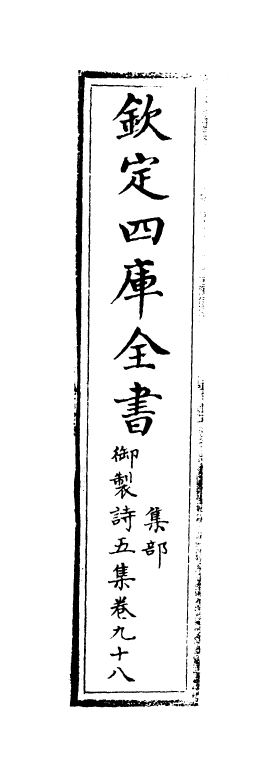 欽定四庫全書
集部
御製詩五集卷九十八